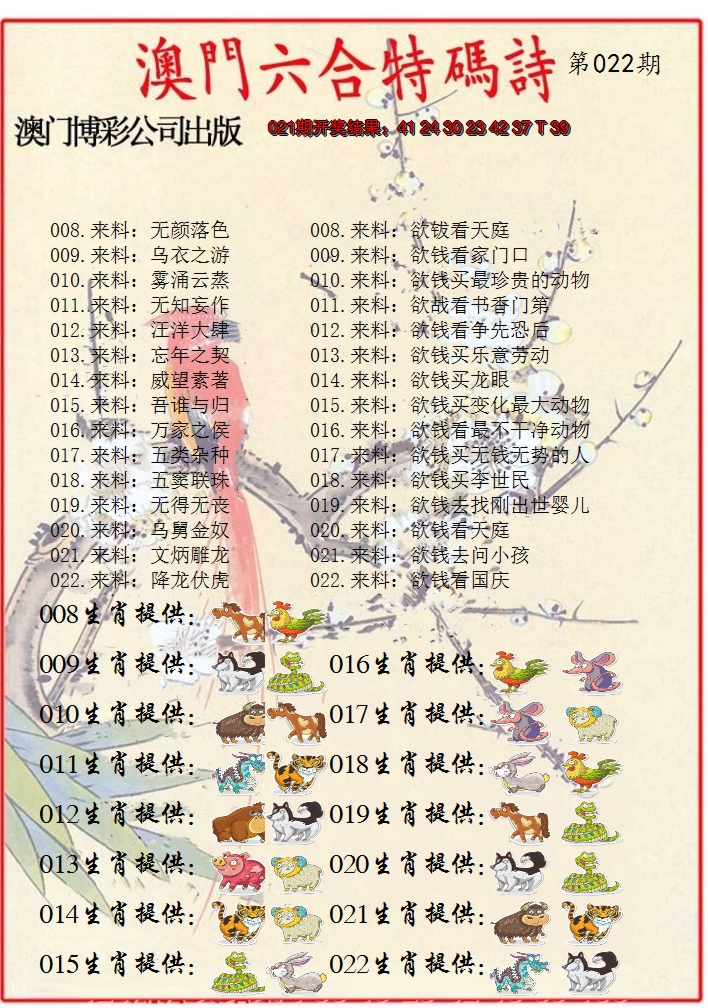 澳門六合特碼詩 第022期
澳门博彩公司出版 021期开奖结果：41 24 30 23 42 37 T 39
008.来料：无颜落色 008.来料：欲钹看天庭
009.来料：乌衣之游 009.来料：欲钱看家门口
010.来料：雾涌云蒸 010.来料：欲钱买最珍贵的动物
011.来料：无知妄作 011.来料：欲战看书香门第
012.来料：汪洋大肆 012.来料：欲钱看争先恐后
013.来料：忘年之契 013.来料：欲钱买乐意劳动
014.来料：威望素著 014.来料：欲钱买龙眼
015.来料：吾谁与归 015.来料：欲钱买变化最大动物
016.来料：万家之侯 016.来料：欲钱看最不干净动物
017.来料：五类杂种 017.来料：欲钱买无钱无势的人
018.来料：五窦联珠 018.来料：欲钱买李世民
019.来料：无得无丧 019.来料：欲钱去找刚出世婴儿
020.来料：乌舅金奴 020.来料：欲钱看天庭
021.来料：文炳雕龙 021.来料：欲钱去问小孩
022.来料：降龙伏虎 022.来料：欲钱看国庆
008生肖提供：
009生肖提供： 016生肖提供：
010生肖提供： 017生肖提供：
011生肖提供： 018生肖提供：
012生肖提供： 019生肖提供：
013生肖提供： 020生肖提供：
014生肖提供： 021生肖提供：
015生肖提供： 022生肖提供：